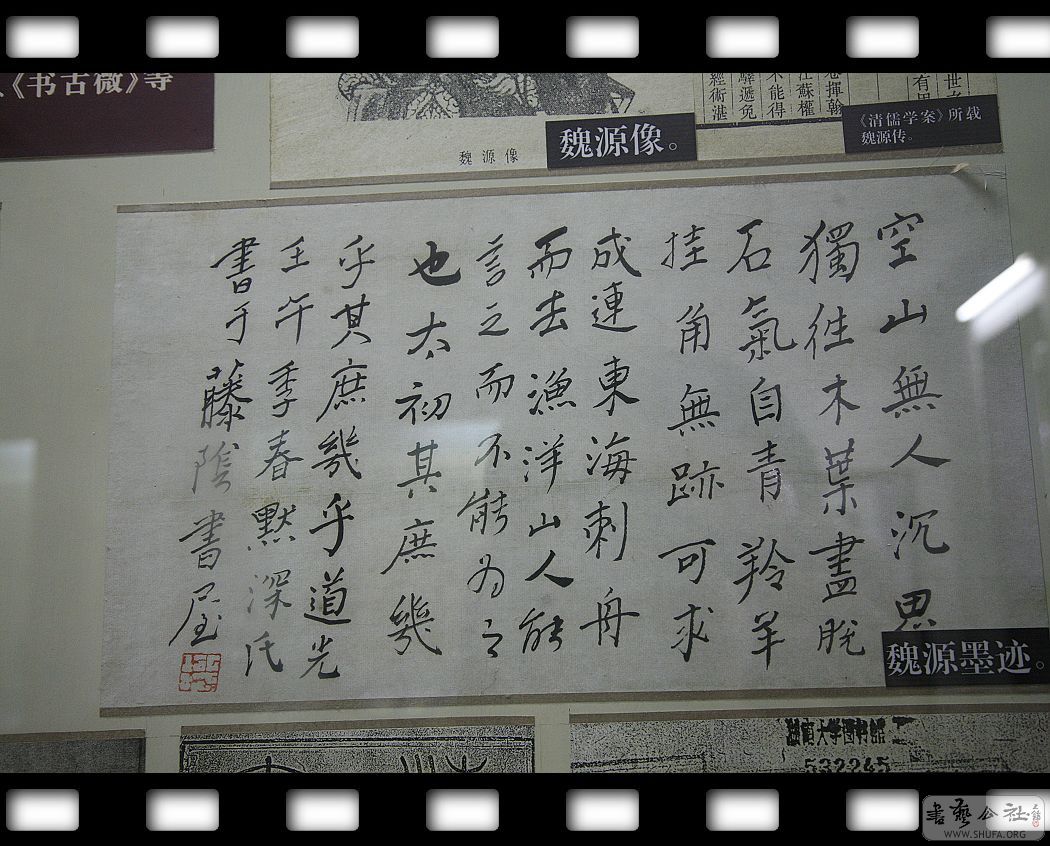 《书古微》等
魏源像
魏源像。
經術湛
驛遞免
不能得
江蘇權
《清儒学案》所载
魏源传。
空山無人沉思
獨往木葉盡脫
石氣自青羚羊
挂角無跡可求
成連東海刺舟
而去漁洋山人能
言之而不能為之
也太初其庶幾
乎其庶幾乎道光
壬午季春默深氏
書于藤陰書屋
魏源墨迹。
湖南大学图书馆
532245
書藝公社
WWW.SHUFA.ORG